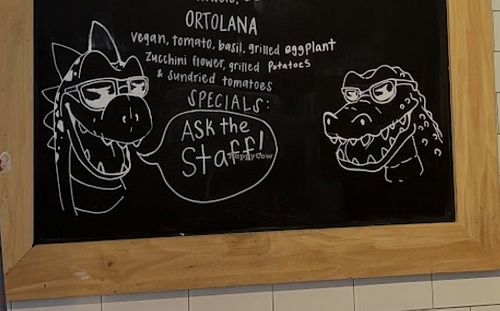 ORTOLANA
vegan, tomato, basil, grilled eggplant
zucchini flower, grilled potatoes
& sundried tomatoes
SPECIALS:
ASK the
Staff!
HappyCow